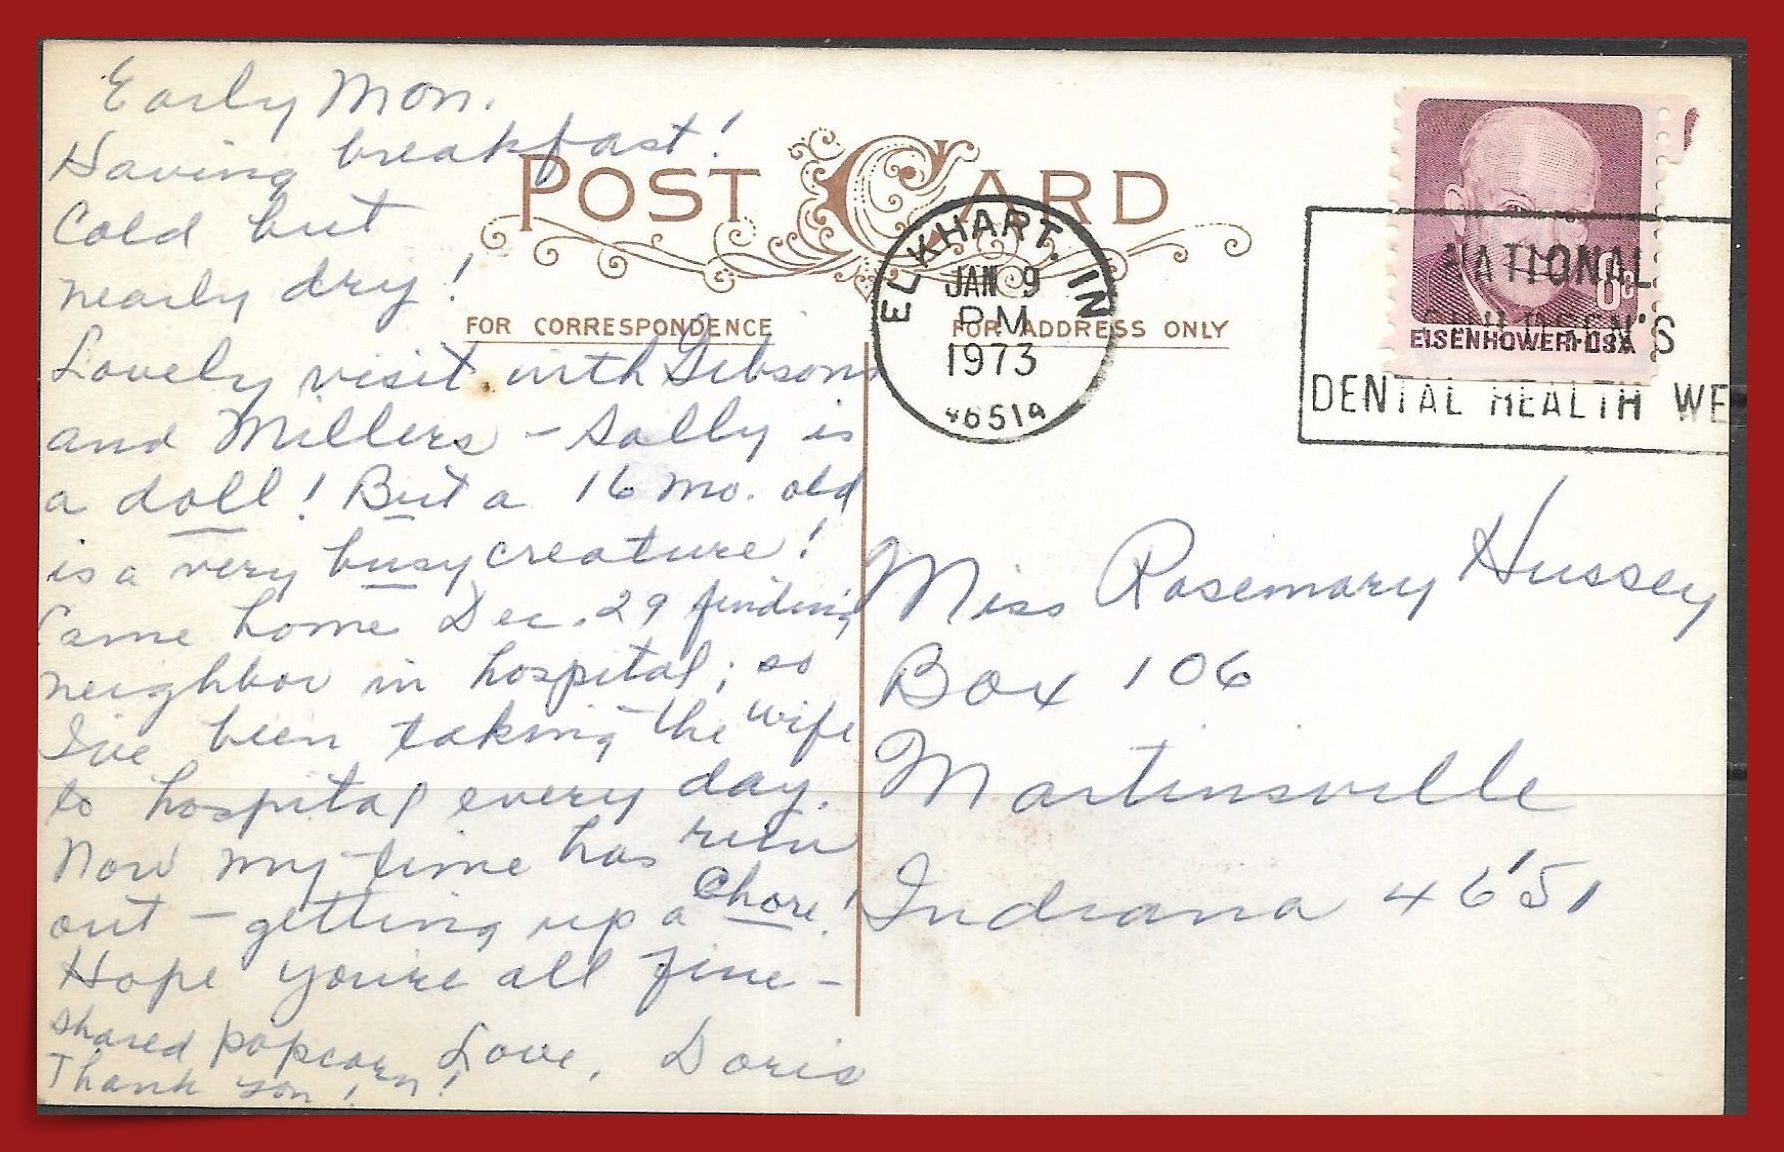 Early Mon.
Having breakfast!
Cold but
nearly dry!
Lovely visit with Gibsons
and Millers - Sally is
a doll! But a 16 mo. old
is a very busy creature!
Came home Dec. 29 finding
neighbor in hospital; so
I've been taking the wife
to hospital every day.
Now my time has run
out - getting up a chore!
Hope you're all fine -
Shared popcorn!
Thank you!
Love, Doris
POST CARD
FOR CORRESPONDENCE
FOR ADDRESS ONLY
ELKHART, IN
JAN 9
PM
1973
46514
NATIONAL
CHILDREN'S
DENTAL HEALTH WE
8c
EISENHOWER·USA
Miss Rosemary Hussey
Box 106
Martinsville
Indiana 46151